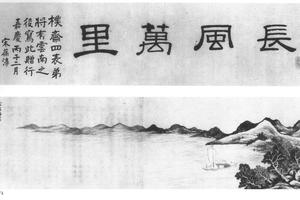 長風萬里
樸齋四表弟
將有雲南之
役寫此贈行
嘉慶丙子十一月
宋葆淳